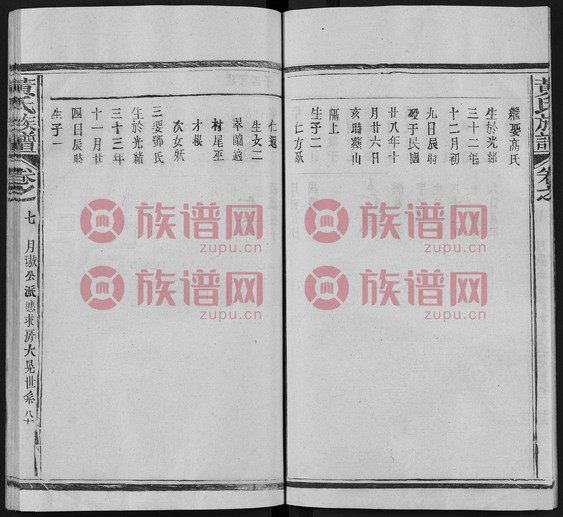 黃氏族譜
卷之
繼娶高氏
生於光緒
三十二年
十二月初
九日辰時
歿于民國
廿八年十
月廿六日
亥時葬山
隔上
生子二
仁方承
仁遠
生女二
翠蘭適
村尾巫
才根
次女妖
三娶鄧氏
生於光緒
三十三年
十一月廿
四日辰時
生子一
黃氏族譜
卷之
七
月璈公派應求房大晃世系
八十
族谱网
zupu.cn
族谱网
zupu.cn
族谱网
zupu.cn
族谱网
zupu.cn